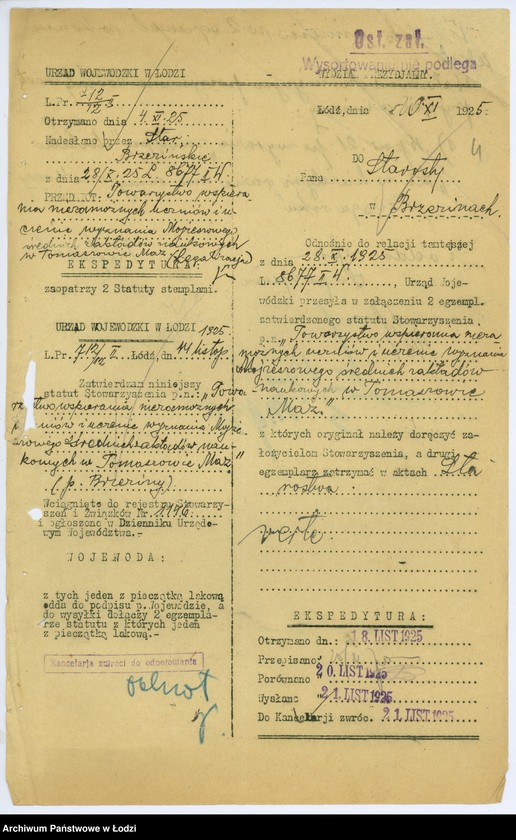 Ost. zał.
Wysortowaniu nie podlega
URZĄD WOJEWÓDZKI W ŁODZI
WYDZIAŁ PREZYDJALNY.
L.Pr. 712/12
Otrzymano dnia 4. XI. 25
Nadesłano przez Star.
Brzezińskie
z dnia 28/X. 25 L. 8677 II W
PRZEDMIOT: Towarzystwo wspiera
nia niezamożnych uczniów i u-
czenic wyznania Mojżeszowego
średnich zakładów naukowych
w Tomaszowie Maz. (legalizacja)
EKSPEDYTURA:
zaopatrzy 2 Statuty stemplami.
URZĄD WOJEWÓDZKI W ŁODZI
L.Pr. 712/12 Łódź, dn. 14 listop. 1925
Zatwierdzam niniejszy
statut Stowarzyszenia p.n.: „Towa
rzystwo wspierania niezamożnych
uczniów i uczenic wyznania Mojże
szowego średnich zakładów nau
kowych w Tomaszowie Maz."
(p. Brzeziny)
Wciągnięto do rejestru Stowarzy-
szeń i Związków Nr. 1116.
i ogłoszono w Dzienniku Urzędo-
wym Województwa.-
WOJEWODA:
z tych jeden z pieczątką lakową
odda do podpisu p. Wojewodzie, a
do wysyłki dołączy 2 egzempla-
rze statutu z których jeden
z pieczątką lakową.-
Kancelarja zwróci do odnotowania
odnot
Łódź, dnia 10 XI 1925
DO
Pana Starosty
w Brzezinach
Odnośnie do relacji tamtejszej
z dnia 28. X. 1925
L. 8677 II W, Urząd Woje-
wódzki przesyła w załączeniu 2 egzempl.
zatwierdzonego statutu Stowarzyszenia
p.n. „Towarzystwo wspierania nieza
możnych uczniów i uczenic wyznania
Mojżeszowego średnich zakładów
naukowych w Tomaszowie
Maz."
z których oryginał należy doręczyć za-
łożycielom Stowarzyszenia, a drugi
egzemplarz zatrzymać w aktach Sta
rostwa.
verte
EKSPEDYTURA:
Otrzymano dn.: 18. LIST 1925
Przepisano
Porównano 20. LIST 1925
Wysłano 21. LIST 1925
Do Kancelarji zwróc. 21. LIST 1925
Archiwum Państwowe w Łodzi